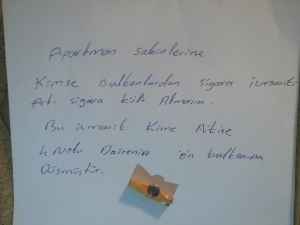 Apartman sakinlerine
Kimse Balkonlardan sigara izmariti
Artı sigara külü Atmasın.
Bu izmarit Kime Aitise
4 nolu Dairenin ön balkonuna
Düşmüştür.